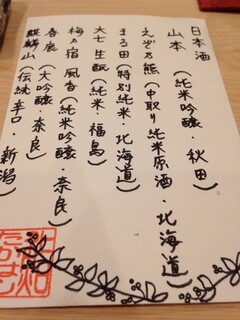 日本酒
山本 (純米吟醸・秋田)
えぞの熊 (中取り純米原酒・北海道)
まる田 (特別純米・北海道)
大七 生酛 (純米・福島)
梅乃宿 風香 (純米吟醸・奈良)
春鹿 (大吟醸・奈良)
麒麟山 (伝統辛口・新潟)